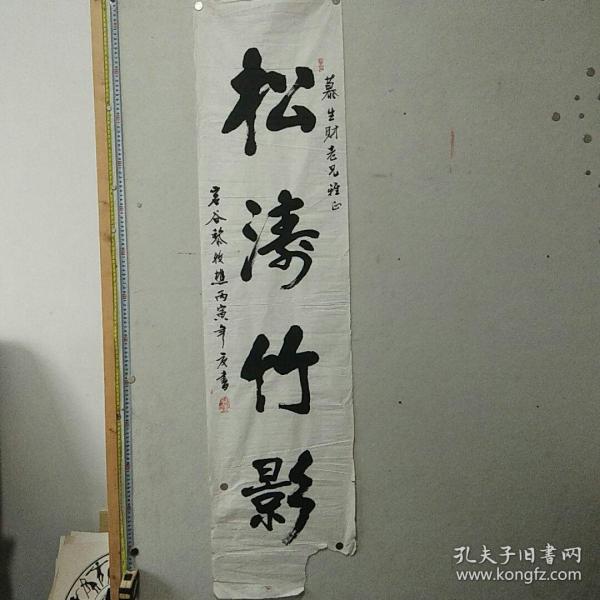 慕生财老兄雅正
松涛竹影
岩谷黎牧樵丙寅年夏书
孔夫子旧书网
www.kongfz.com